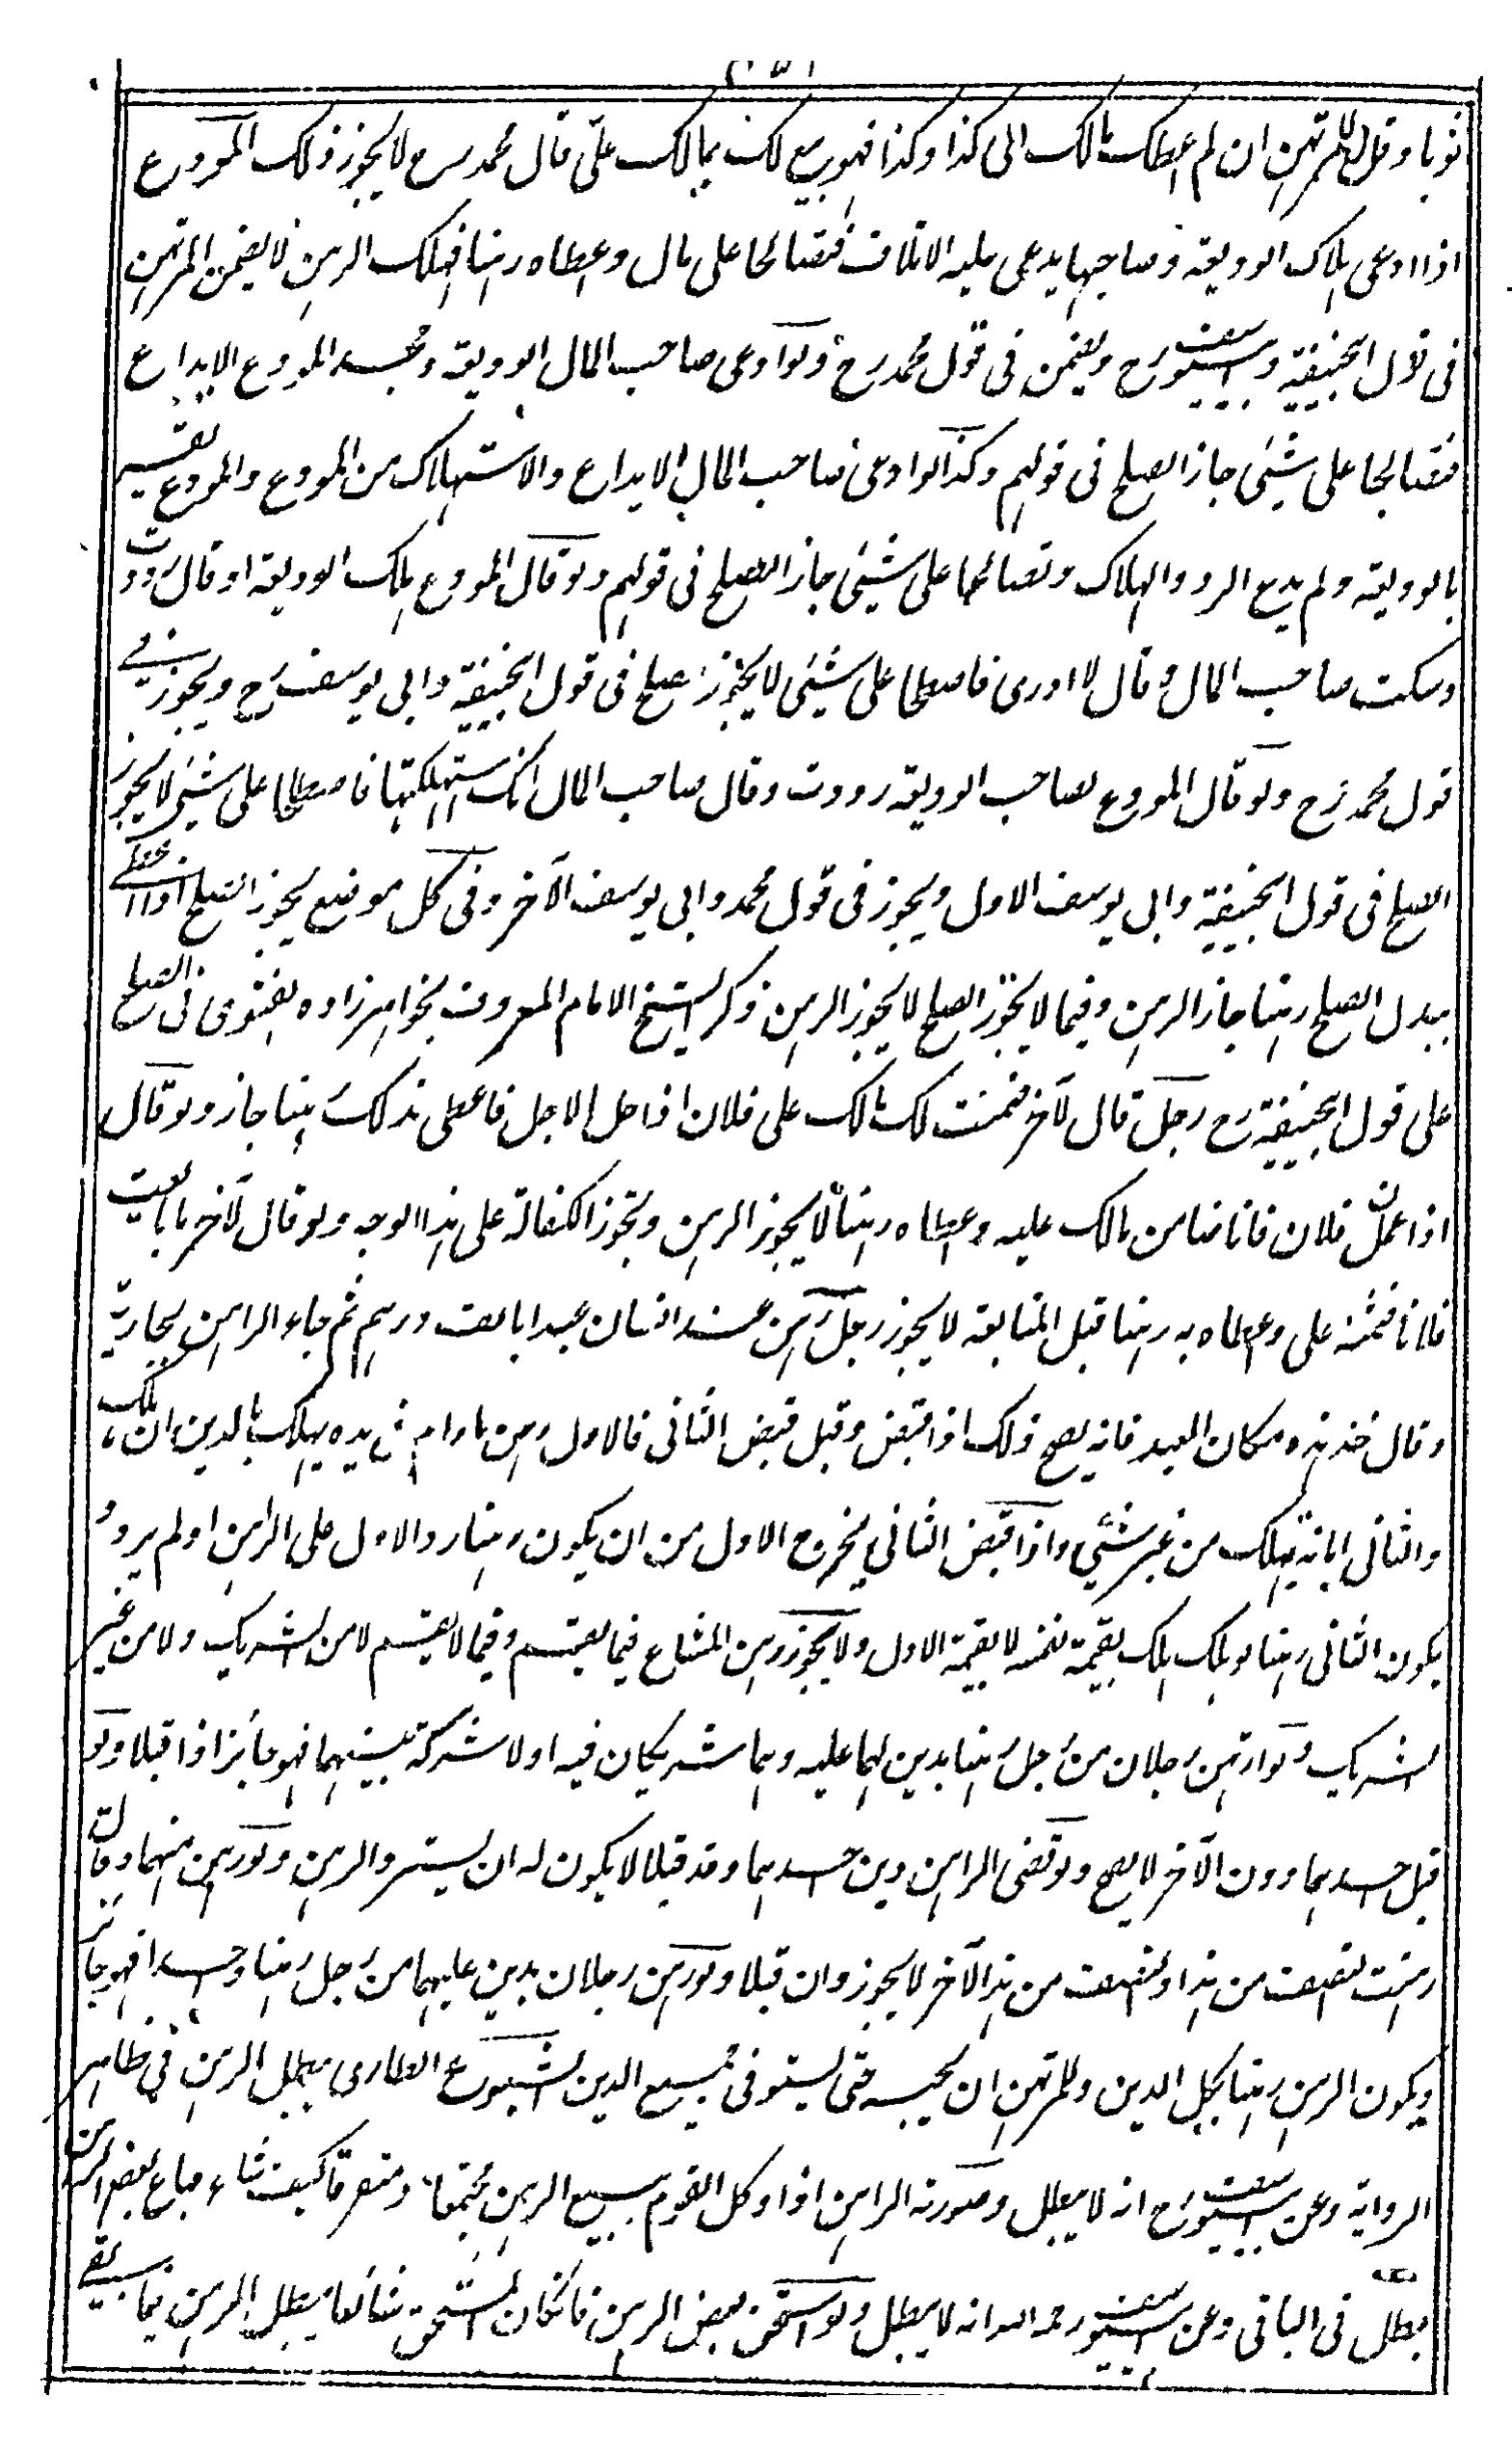 ثوبا وقال للمرتهن ان لم اعطك مالك الى كذا وكذا فهو بيع لك بمالك علىّ قال محمد رح لا يجوز ذلك المودع
اذا ادعى هلاك الوديعة وصاحبها يدعى عليه الاتلاف فتصالحا على مال واعطاه رهنا فهلك الرهن لا يضمن المرتهن
فى قول ابيحنيفة وابييوسف رح ويضمن فى قول محمد رح ولو ادعى صاحب المال الوديعة وجحد المودع الايداع
فتصالحا على شيئ جاز الصلح فى قولهم وكذا لو ادعى صاحب المال الايداع والاستهلاك من المودع والمودع يقر
بالوديعة ولم يدع الرد والهلاك وتصالحا على شيئ جاز الصلح فى قولهم ولو قال المودع هلك الوديعة او قال رددت
وسكت صاحب المال او قال لا ادرى فاصطلحا على شيئ لا يجوز الصلح فى قول ابيحنيفة وابى يوسف رح ويجوز فى
قول محمد رح ولو قال المودع لصاحب الوديعة رددت وقال صاحب المال انك استهلكتها فاصطلحا على شيئ لا يجوز
الصلح فى قول ابيحنيفة وابى يوسف الاول ويجوز فى قول محمد وابى يوسف الآخر وفى كل موضع يجوز الصلح اذا اعطى
ببدل الصلح رهنا جاز الرهن وفيما لا يجوز الصلح لا يجوز الرهن ذكر الشيخ الامام المعروف بخواهرزاده الفتوى فى الصلح
على قول ابيحنيفة رح رجل قال لآخر ضمنت لك مالك على فلان اذا حل الاجل فاعطى بذلك رهنا جاز ولو قال
اذا عمل فلان فانا ضامن مالك عليه واعطاه رهنا لا يجوز الرهن وتجوز الكفالة على هذا الوجه ولو قال لآخر ما بايعت
فلانا فثمنه على واعطاه به رهنا قبل المبايعة لا يجوز رجل رهن عند انسان عبدا بالف درهم ثم جاء الراهن بجارية
وقال خذ هذه مكان العبد فانه يصح ذلك اذا قبض وقبل قبض الثانى فالاول رهن مادام فى يده يهلك بالدين ان هلك
والثانى امانة يهلك من غير شيئ واذا قبض الثانى يخرج الاول من ان يكون رهنا رد الاول على الراهن او لم يرد و
يكون الثانى رهنا لو هلك هلك بقيمة نفسه لا بقيمة الاول ولا يجوز رهن المشاع فيما يقسم وفيما لا يقسم لا من الشريك ولا من غير
الشريك ولو ارتهن رجلان من رجل رهنا بدين لهما عليه وهما شريكان فيه او لا شركة بينهما فهو جائز اذا قبلا ولو
قبل احدهما دون الآخر لا يصح ولو قضى الراهن دين احدهما وقد قبلا لا يكون له ان يسترد الرهن ولو رهن منهما وقال
رهنت النصف من هذا والنصف من هذا الآخر لا يجوز وان قبلا ولو رهن رجلان بدين عليهما من رجل رهنا واحدا فهو جائز
ويكون الرهن رهنا بكل الدين وللمرتهن ان يحبسه حتى يستوفى جميع الدين الشيوع الطارى يبطل الرهن فى ظاهر
الرواية وعن ابييوسف رح انه لا يبطل وصورته الراهن اذا وكل القوم ببيع الرهن مجتمعا ومتفرقا كيف شاء فباع بعض الرهن
بطل فى الباقى وعن ابييوسف رحمه الله انه لا يبطل ولو استحق بعض الرهن فان كان المستحق شائعا يبطل الرهن فيما بقى